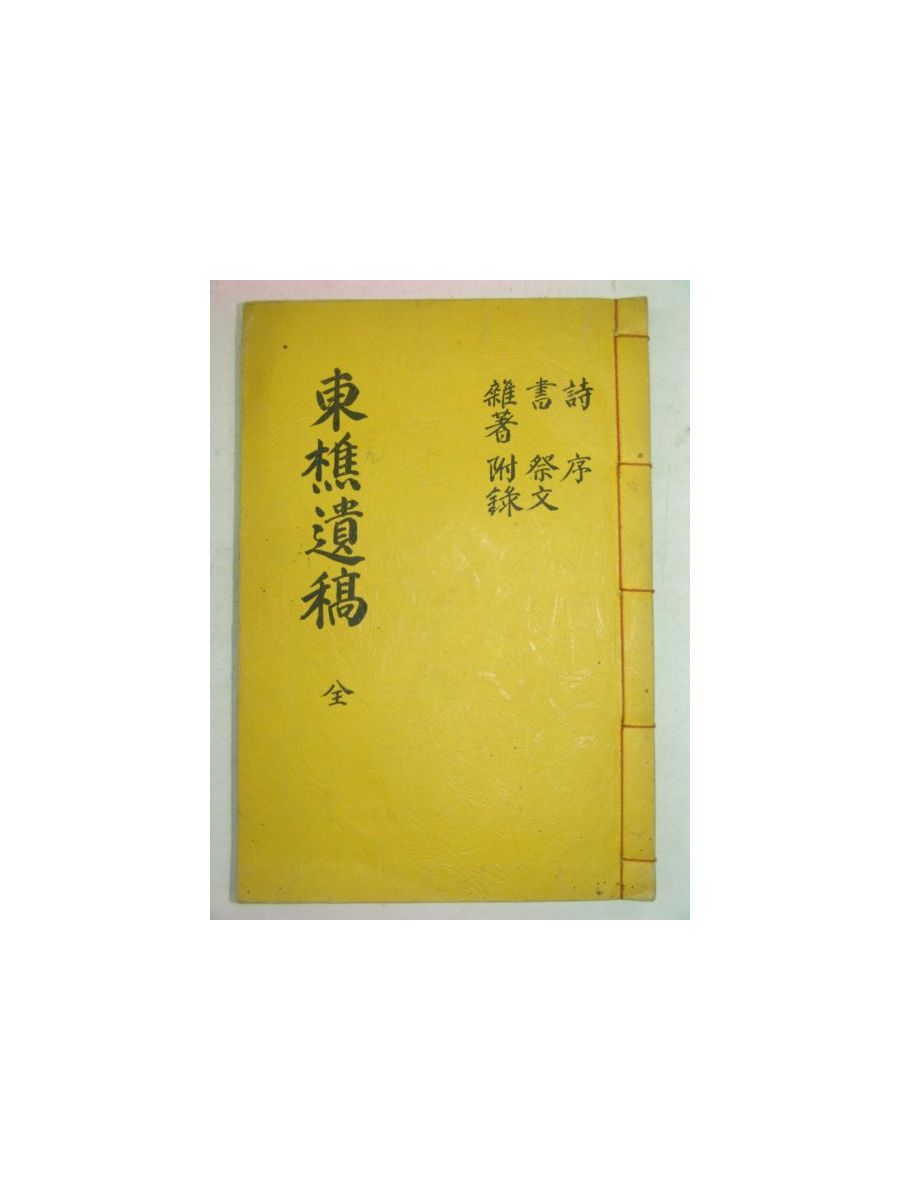 詩 序
書 祭文
雜著 附錄
東樵遺稿 全